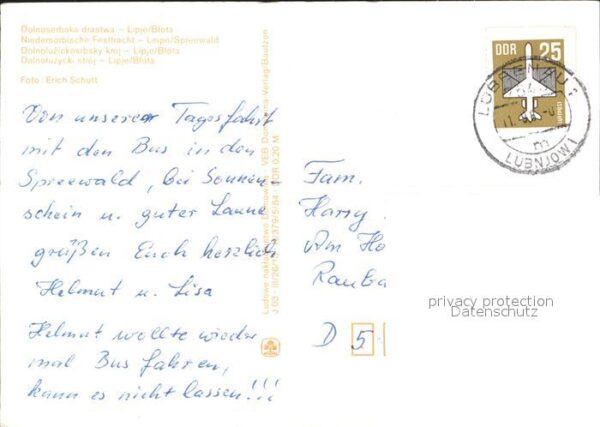 Dolnoserbska drastwa – Lipje/Błota
Niedersorbische Festtracht – Leipe/Spreewald
Dolnolužickosrbský kroj – Lipje/Błota
Dolnołużycki strój – Lipje/Błota
Foto: Erich Schutt
Von unserer Tagesfahrt
mit den Bus in den
Spreewald, bei Sonnen-
schein u. guter Laune
grüßen Euch herzlich
Helmut u. Lisa
Helmut wollte wieder
mal Bus fahren,
kann es nicht lassen!!!
Ludowe nakładnistwo Domowina VEB Domowina-Verlag/Bautzen
DDR 0,20 M
DDR 25
LÜBBENAU 1
m
LUBNJOW 1
Fam.
Harry
Am Ho
Rauba
D 5
privacy protection
Datenschutz